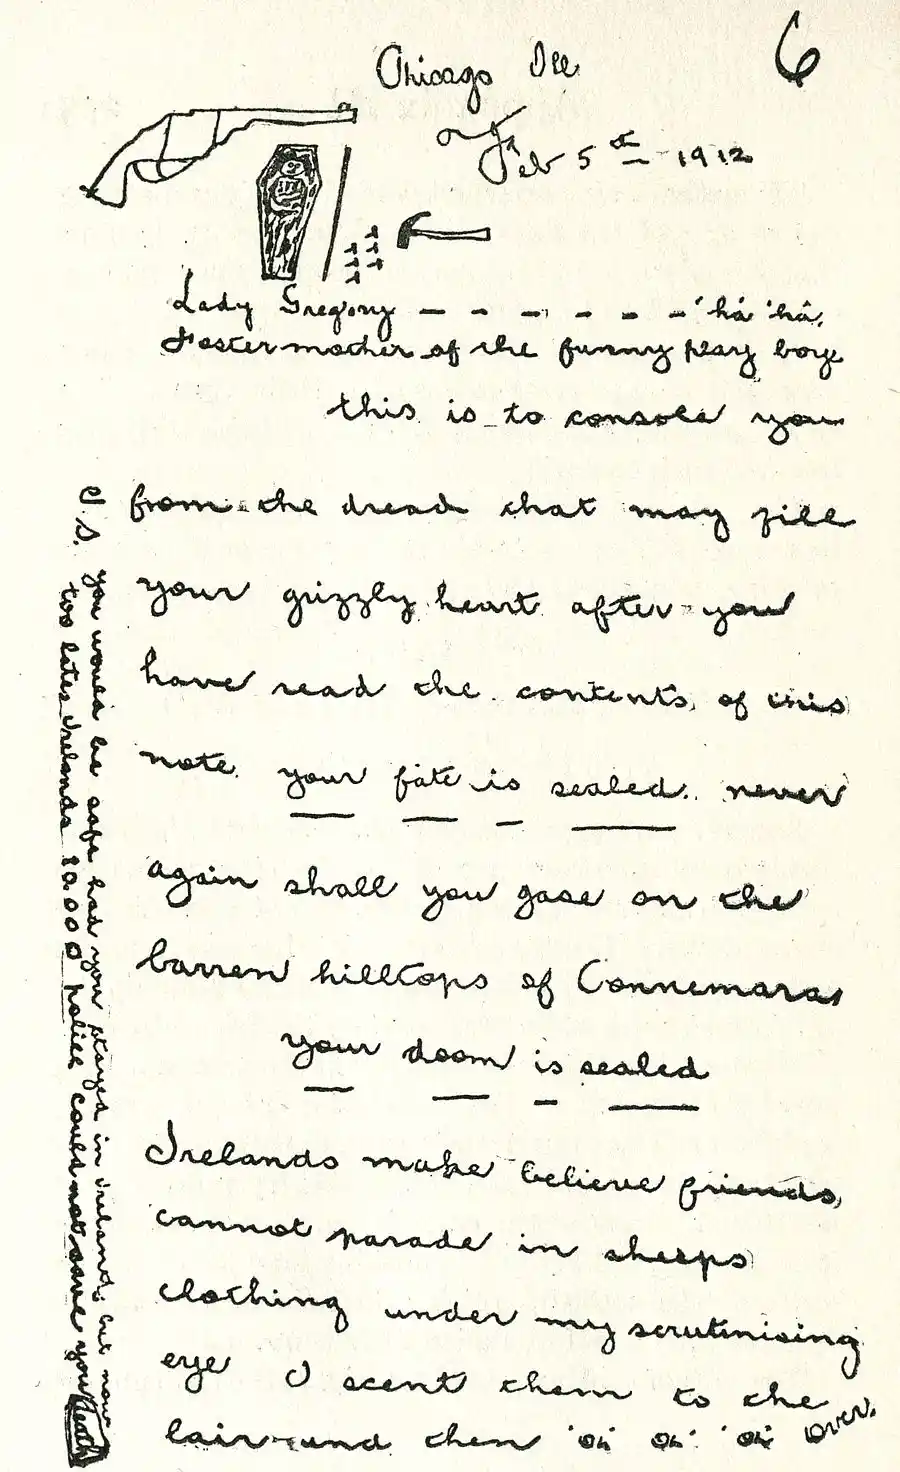 6
Chicago Ill
Feb 5th 1912
Lady Gregory — - - - - - 'ha 'ha.
Fostermother of the funny play boy
this is to console you
from the dread that may fill
your grizzly heart after you
have read the contents of this
note your fate is sealed. never
again shall you gase on the
barren hilltops of Connemara
your doom is sealed
Irelands make believe friends
cannot parade in sheeps
clothing under my scrutinising
eye I scent them to the
lair and then oh oh oh over.
P.S. you would be safe had you stayed in Ireland; but now
too late. Irelands 12000 police could not save you death